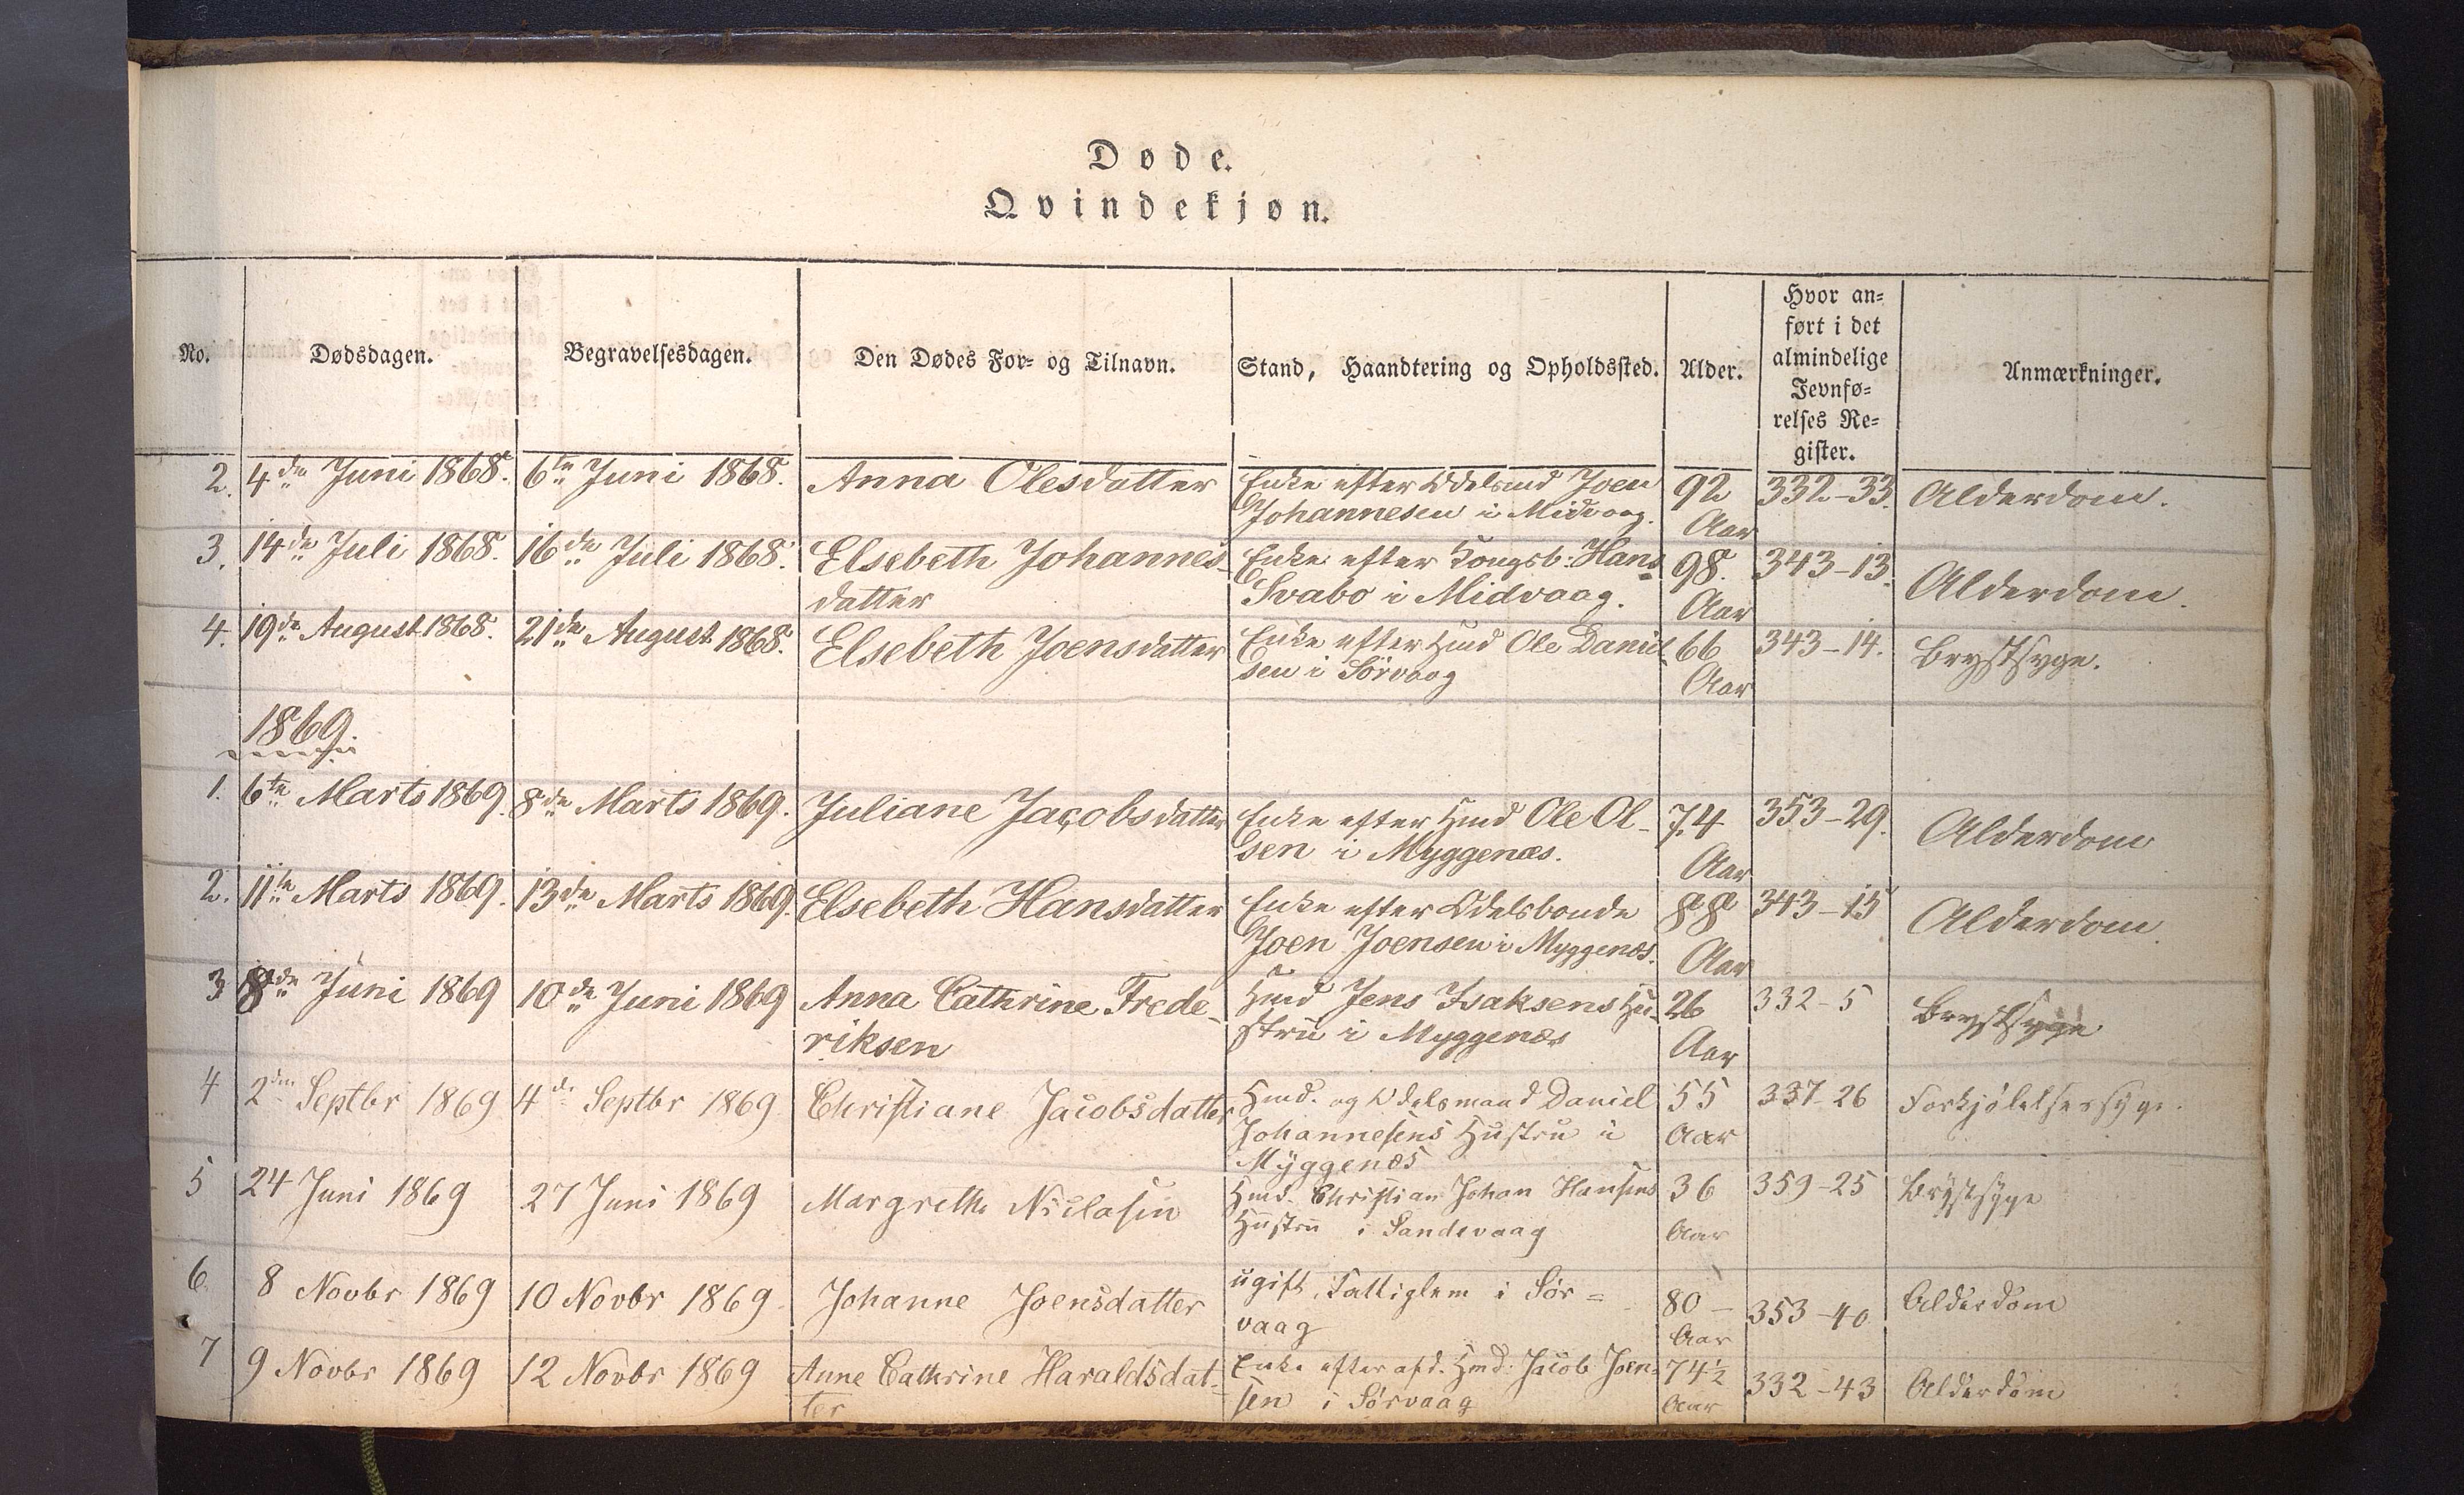 Døde.
Qvindekjøn.
No.
Dødsdagen.
Begravelsesdagen.
Den Dødes For- og Tilnavn.
Stand, Haandtering og Opholdssted.
Alder.
Hvor an-
ført i det
almindelige
Jevnfø-
relses Re-
gister.
Anmærkninger.
2. 4den Juni 1868. 6te Juni 1868. Anna Olesdatter Enke efter Odelsmd Joen 92 332-33. Alderdom.
Johannesen i Midvaag. Aar
3. 14de Juli 1868. 16de Juli 1868. Elsebeth Johannes- Enke efter Kongsb: Hans 98. 343-13. Alderdom.
datter Svabo i Midvaag. Aar
4. 19de August 1868. 21de August 1868. Elsebeth Joensdatter Enke efter Hmd Ole Daniel- 66 343-14. Brystsyge.
sen i Sörvaag Aar
1869.
1. 6te Marts 1869. 8de Marts 1869. Juliane Jacobsdatter Enke efter Hmd Ole Ol- 74 353-29. Alderdom
sen i Myggenæs. Aar
2. 11te Marts 1869. 13de Marts 1869. Elsebeth Hansdatter Enke efter Odelsbonde 88 343-15 Alderdom.
Joen Joensen i Myggenæs. Aar
3 8de Juni 1869 10de Juni 1869 Anna Cathrine Frede- Hmd Jens Isaksens Hu- 26 332-5 Brystsyge
riksen stru i Myggenæs Aar
4 2den Septbr 1869 4de Septbr 1869 Christiane Jacobsdatter Hmd. og Odelsmand Daniel 55 337-26 Forkjölelsessyge.
Johannesens Hustru i Aar
Myggenæs
5 24 Juni 1869 27 Juni 1869 Margrethe Niclasen Hmd. Christian Johan Hansens 36 359-25 Brystsyge
Hustru i Sandevaag Aar
6. 8 Novbr 1869 10 Novbr 1869. Johanne Joensdatter ugift, Fattiglem i Sör= 80- 353-40 Alderdom
vaag Aar
7 9 Novbr 1869 12 Novbr 1869 Anne Cathrine Haraldsdat- Enke efter afd. Hmd: Jacob Joen- 74½ 332-43 Alderdom
ter sen i Sörvaag Aar